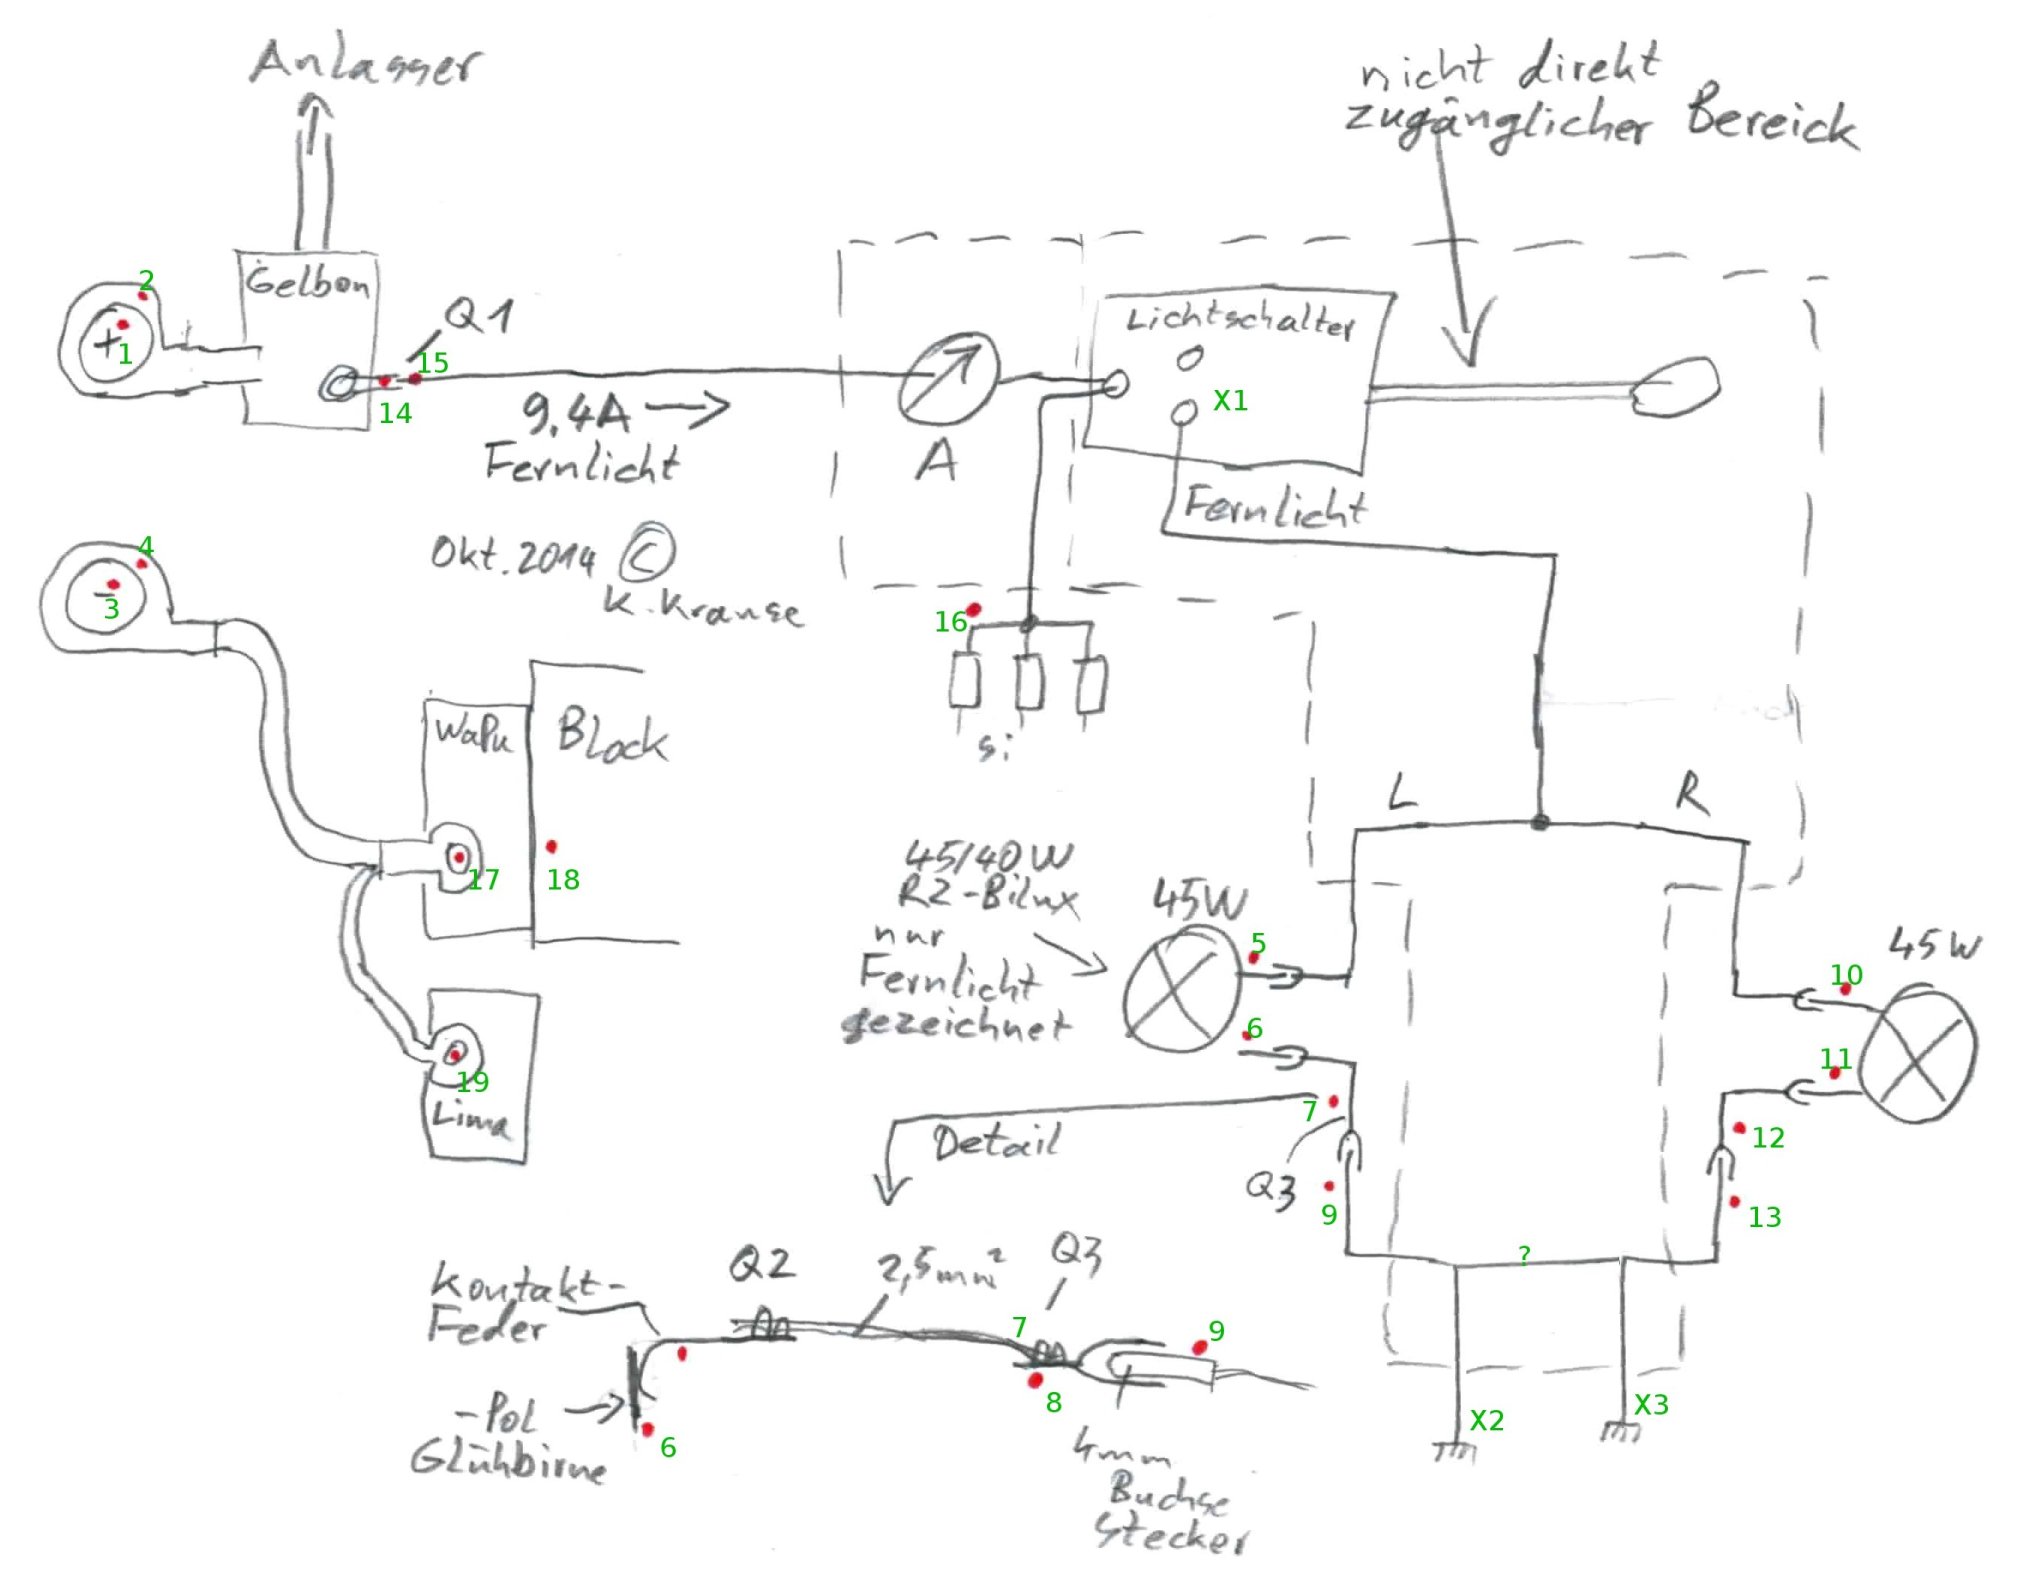 Anlasser
nicht direkt
zugänglicher Bereick
2
Gelbon
+
1
Q1
15
14
9,4A
Fernlicht
A
Lichtschalter
X1
Fernlicht
4
-
3
Okt. 2014 ©
K. Krause
16
Si
WaPu
Block
17
18
19
Lima
L
R
45/40W
R2-Bilux
nur
Fernlicht
gezeichnet
45W
5
6
45W
10
11
7
Q3
9
12
13
Detail
?
X2
X3
Kontakt-
Feder
Q2
2,5mm²
Q3
7
9
8
-Pol
Glühbirne
6
4mm
Buchse
Stecker